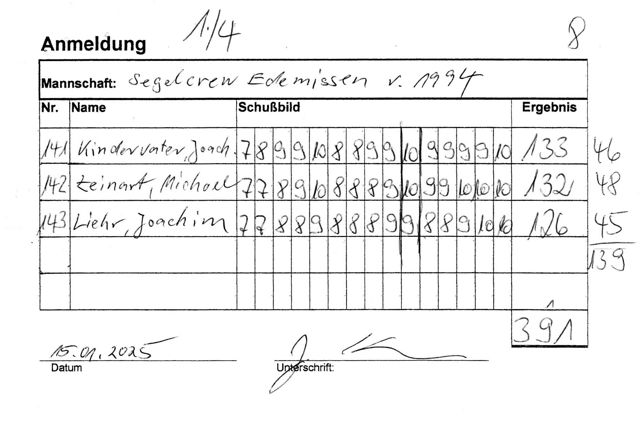 1./4
8
Anmeldung
Mannschaft: Segelcrew Edemissen v. 1994
Nr. Name Schußbild Ergebnis
141 Kindervater, Joach. 7 8 9 9 10 8 8 9 9 10 9 9 9 9 10 133 46
142 Zeinart, Michael 7 7 8 9 10 8 8 8 9 10 9 9 10 10 10 132 48
143 Liehr, Joachim 7 7 8 8 9 8 8 8 9 9 8 8 9 10 10 126 45
139
391
15.01.2025
Datum Unterschrift: